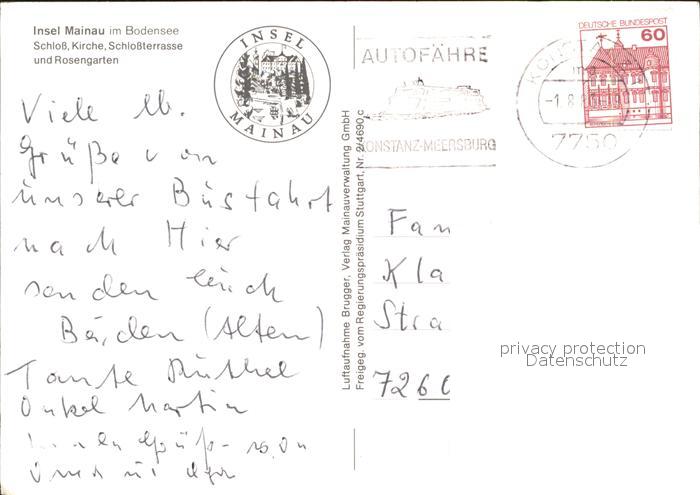 Insel Mainau im Bodensee
Schloß, Kirche, Schloßterrasse
und Rosengarten
INSEL
MAINAU
AUTOFÄHRE
KONSTANZ-MEERSBURG
DEUTSCHE BUNDESPOST
60
-1.8.
7750
Viele lb.
Grüße von
unserer Busfahrt
nach Hier
senden Euch
Beiden (Alten)
Tante
Onkel Martin
Luftaufnahme Brugger, Verlag Mainauverwaltung GmbH
Freigeg. vom Regierungspräsidium Stuttgart, Nr. 2/4690 c
Fam
Kla
Stra
7260
privacy protection
Datenschutz